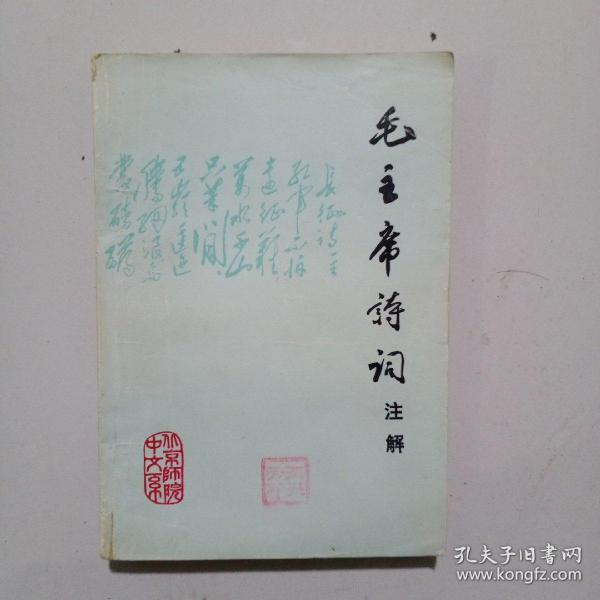 毛主席詩词
注解
长征诗一首
红军不怕
远征难,
万水千山
只等闲。
五岭逶迤
腾细浪,乌
蒙磅礴
北京师院
中文系
孔夫子旧书网
www.kongfz.com